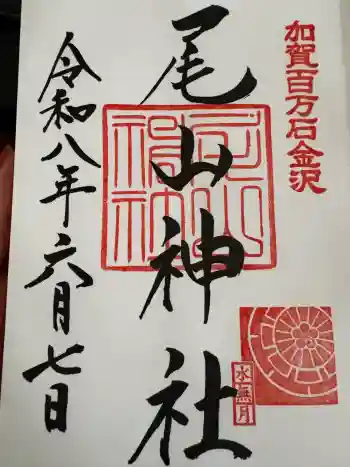 加賀百万石金沢
尾山神社
尾山神社
水無月
令和八年六月七日